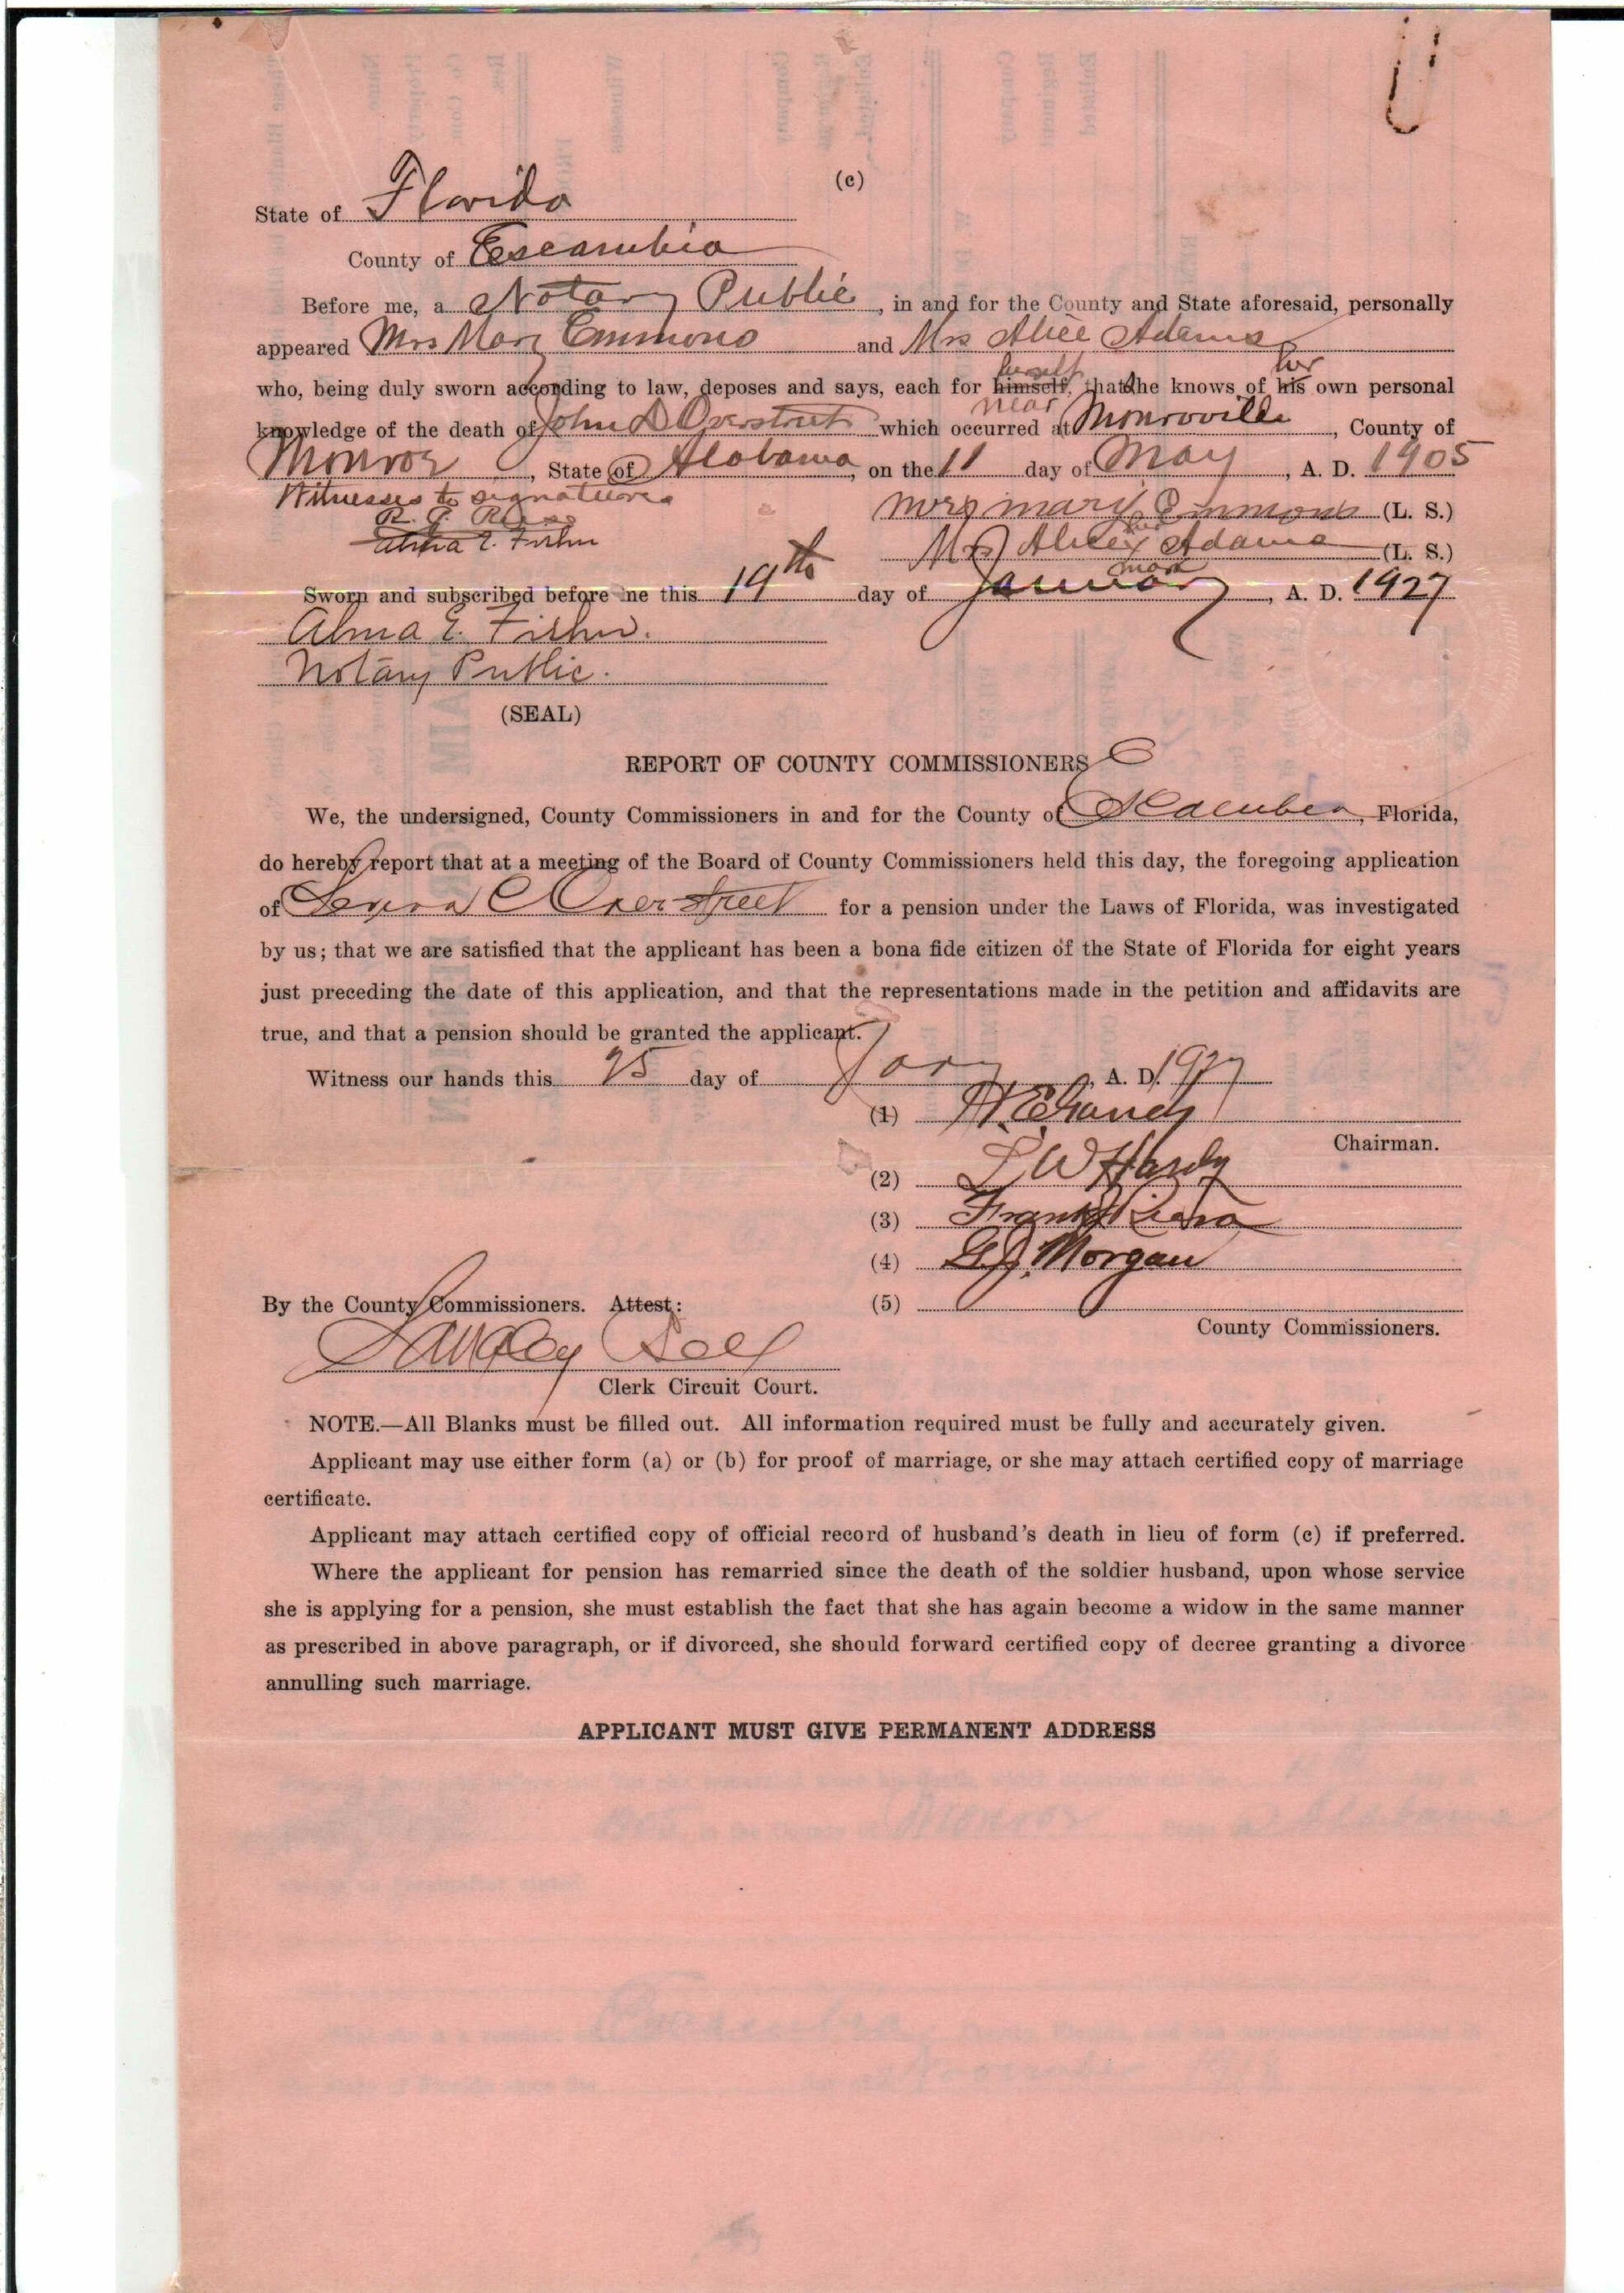 (c)
State of Florida
County of Escambia
Before me, a Notary Public, in and for the County and State aforesaid, personally
appeared Mrs Mary Emmons and Mrs Alice Adams
herself her
who, being duly sworn according to law, deposes and says, each for himself, that she knows of his own personal
near
knowledge of the death of John D Overstreet which occurred at Monroville, County of
Monroe, State of Alabama, on the 11 day of May, A. D. 1905
Witnesses to signatures
R. G.
Mrs mary Emmons (L. S.)
Alma E. Fisher
her
Mrs Alice x Adams (L. S.)
mark
Sworn and subscribed before me this 19th day of January, A. D. 1927
Alma E. Fisher.
Notary Public.
(SEAL)
REPORT OF COUNTY COMMISSIONERS
We, the undersigned, County Commissioners in and for the County of Escambia, Florida,
do hereby report that at a meeting of the Board of County Commissioners held this day, the foregoing application
of C Overstreet for a pension under the Laws of Florida, was investigated
by us; that we are satisfied that the applicant has been a bona fide citizen of the State of Florida for eight years
just preceding the date of this application, and that the representations made in the petition and affidavits are
true, and that a pension should be granted the applicant.
Witness our hands this 25 day of Jany, A. D. 1927
(1) H. E.
Chairman.
(2) L W Hardy
(3) Frank
(4) G. J. Morgan
By the County Commissioners. Attest: (5)
County Commissioners.
Langley Bell
Clerk Circuit Court.
NOTE.—All Blanks must be filled out. All information required must be fully and accurately given.
Applicant may use either form (a) or (b) for proof of marriage, or she may attach certified copy of marriage
certificate.
Applicant may attach certified copy of official record of husband's death in lieu of form (c) if preferred.
Where the applicant for pension has remarried since the death of the soldier husband, upon whose service
she is applying for a pension, she must establish the fact that she has again become a widow in the same manner
as prescribed in above paragraph, or if divorced, she should forward certified copy of decree granting a divorce
annulling such marriage.
APPLICANT MUST GIVE PERMANENT ADDRESS